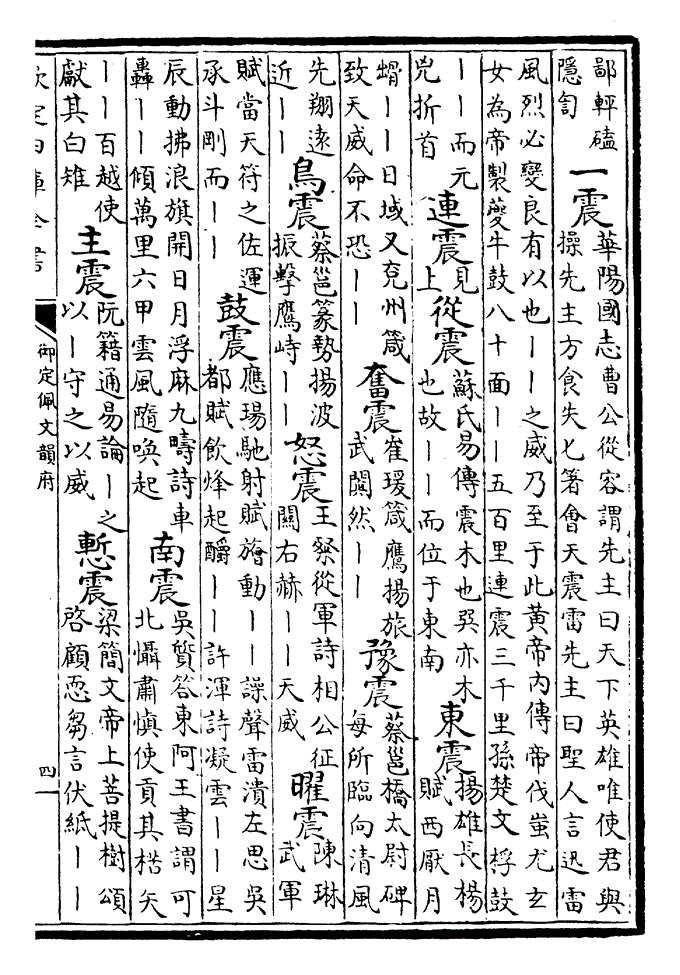 鄙軯磕隱訇 一震 華陽國志曹公從容謂先主曰天下英雄唯使君與操先主方食失匕箸會天震雷先主曰聖人言迅雷
風烈必變良有以也——之威乃至于此黃帝內傳帝伐蚩尤玄女為帝製夔牛鼓八十面——五百里連震三千里孫楚文桴鼓
——而元兕折首 連震 見上 從震 蘇氏易傳震木也巽亦木也故——而位于東南 東震 揚雄長楊賦西厭月
蝟——日域又兖州箴致天威命不恐—— 奮震 崔瑗箴鷹揚旅武闞然—— 豫震 蔡邕橋太尉碑每所臨向清風
先翔遠近—— 鳥震 蔡邕篆勢揚波振擊鷹峙—— 怒震 王粲從軍詩相公征關右赫——天威 曜震 陳琳武軍
賦當天符之佐運承斗剛而—— 鼓震 應瑒馳射賦旝動——譟聲雷潰左思吳都賦飲烽起釂——許渾詩凝雲——星
辰動拂浪旗開日月浮麻九疇詩車轟——傾萬里六甲雲風隨喚起 南震 吳質答東阿王書謂可北懾肅慎使貢其楛矢
——百越使獻其白雉 主震 阮籍通易論—之以—守之以威 慙震 梁簡文帝上菩提樹頌啓顧恧芻言伏紙——
欽定四庫全書 御定佩文韻府 四